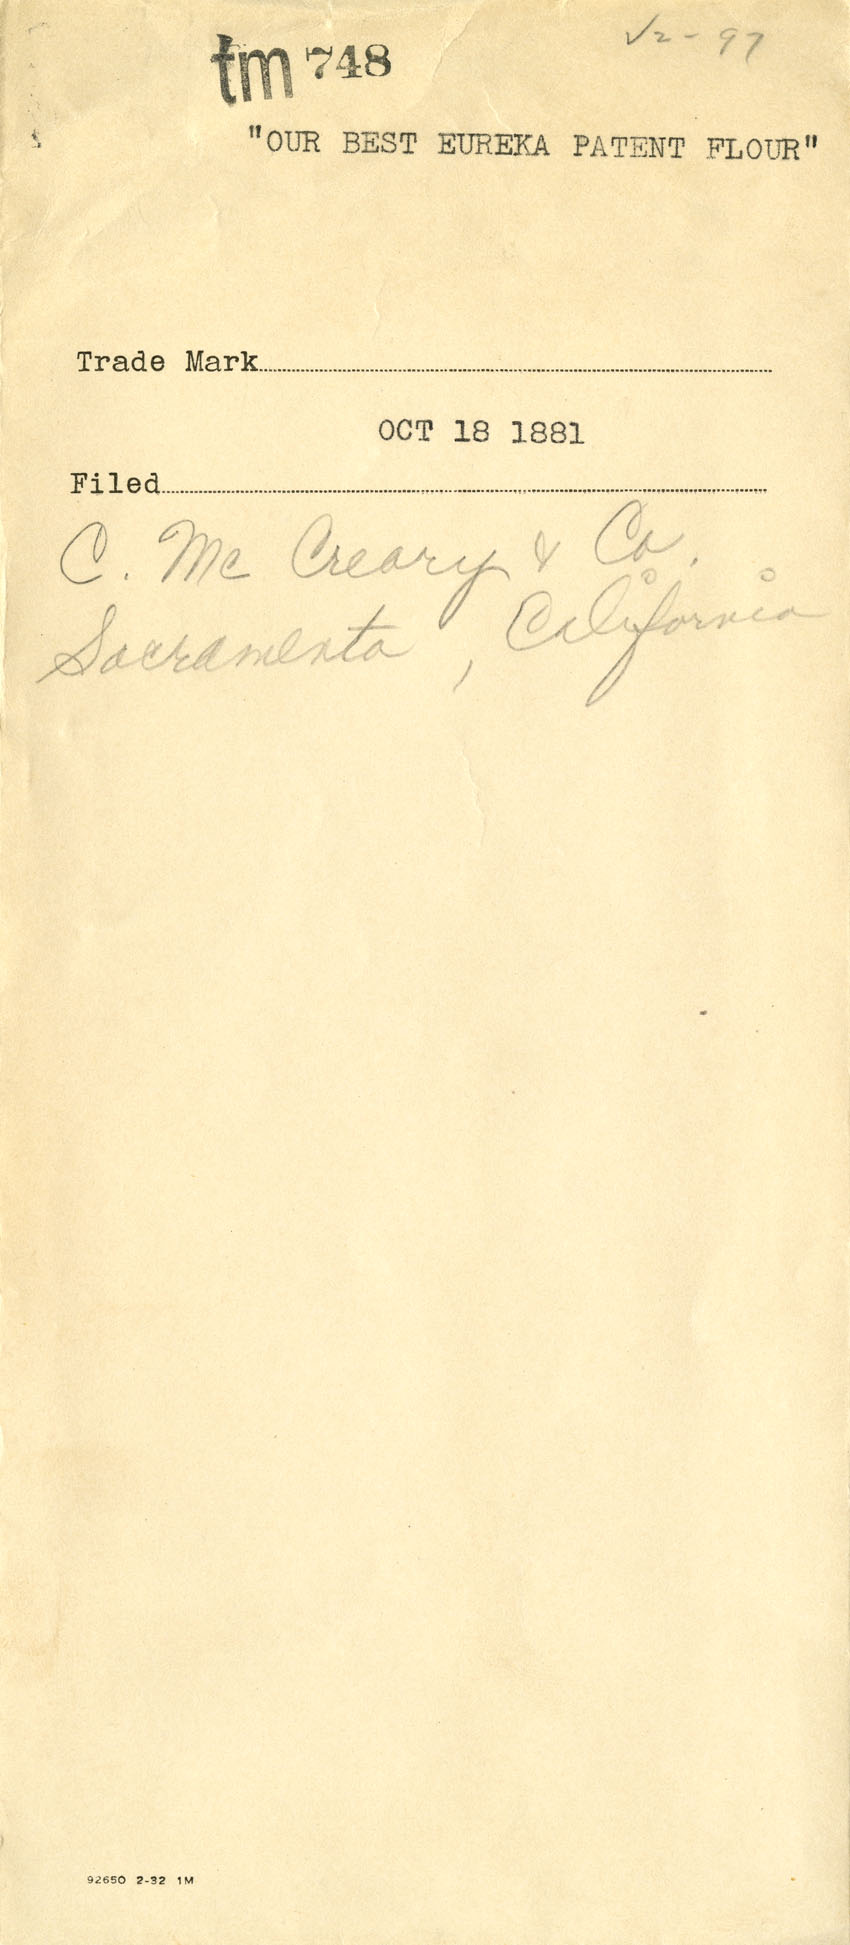 √2-97
tm 748
"OUR BEST EUREKA PATENT FLOUR"
Trade Mark
OCT 18 1881
Filed
C. Mc Creary & Co.
Sacramento, California
92650 2-32 1M